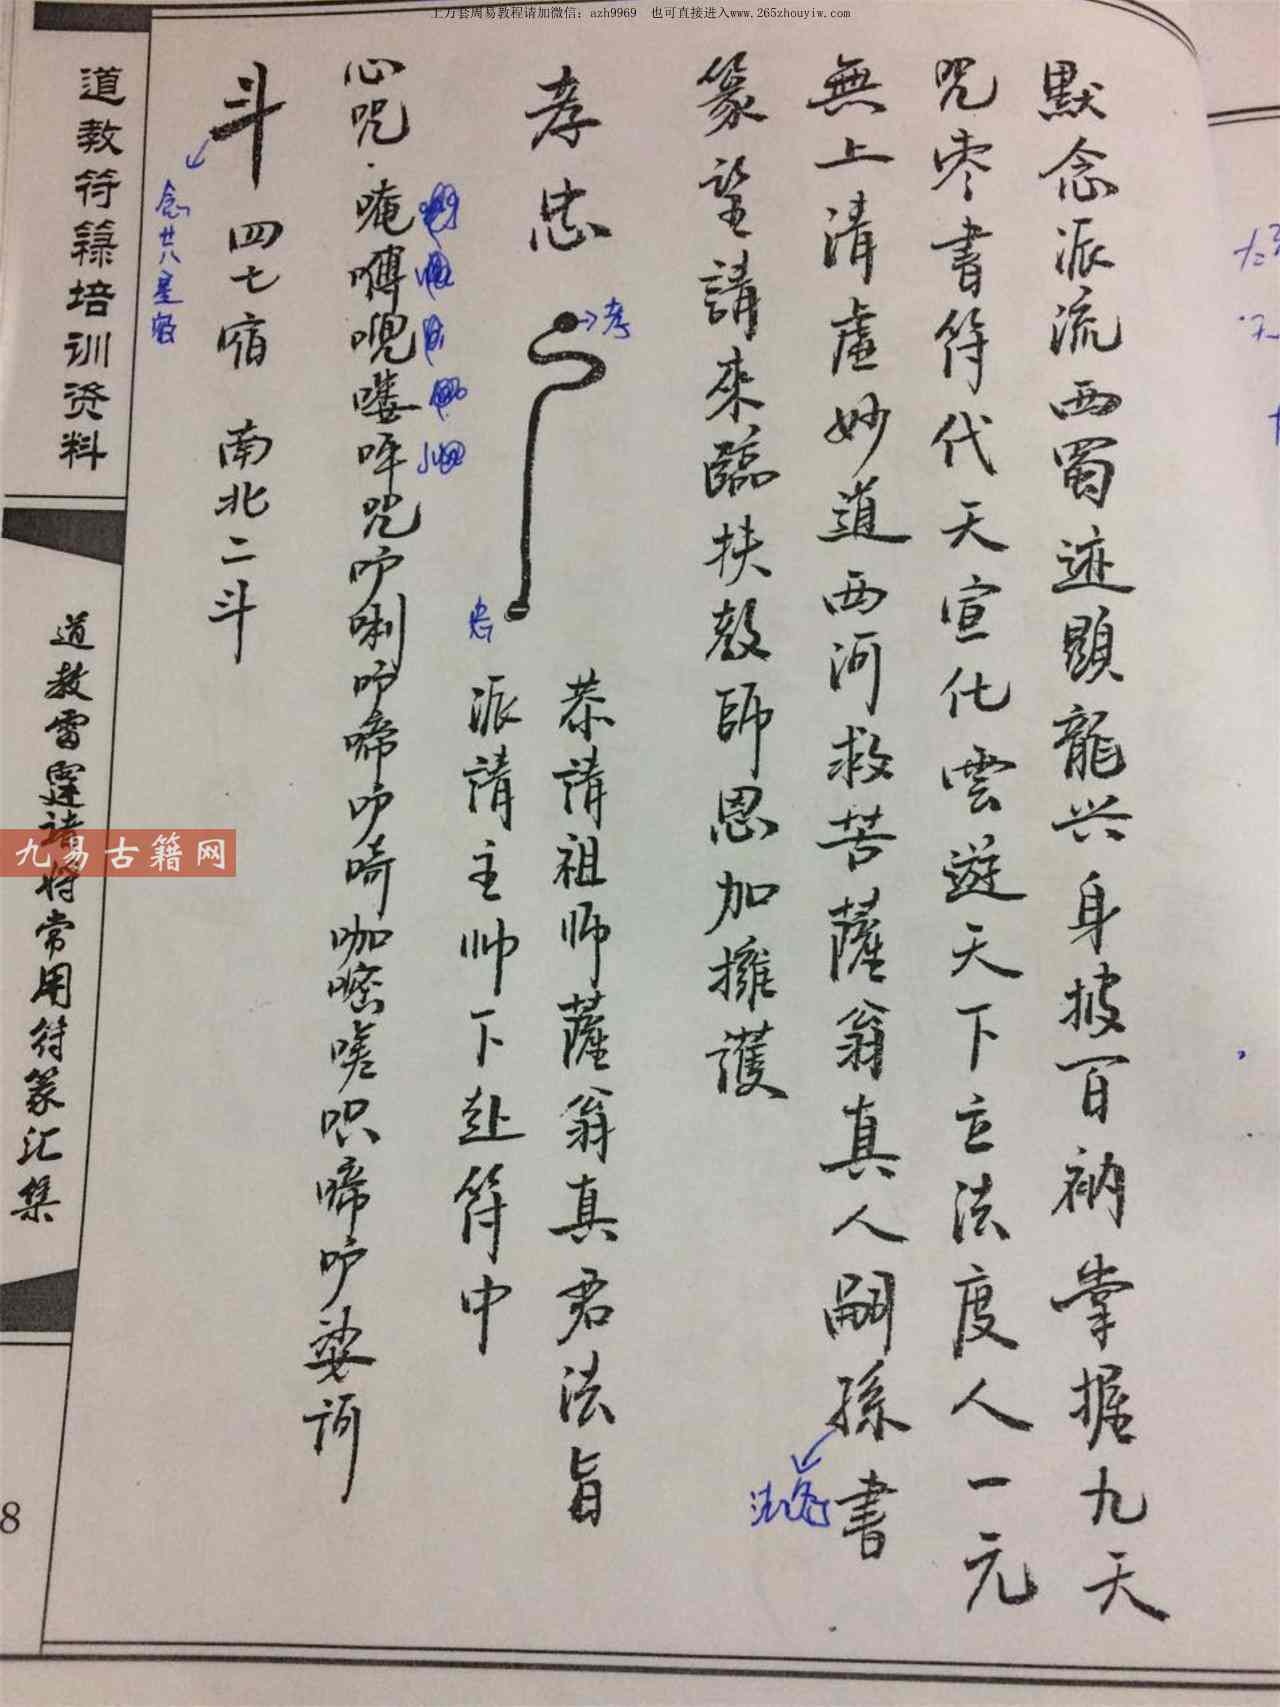 上万套周易教程请加微信：azh9969 也可直接进入www.265zhouyiw.com
默念派流西蜀迹顕龍兴身披百衲掌握九天
咒枣書符代天宣化雲遊天下立法度人一元
無上清虚妙道西河救苦薩翁真人嗣孫書
法名
篆望請来臨扶教師恩加擁護
孝忠
孝
忠
恭请祖师薩翁真君法旨
派请主帅下赴符中
心咒·唵
斗 四七宿 南北二斗
念廿八星宿
道教符籙培训资料
道教雷霆诸将常用符篆汇集
九易古籍网
8